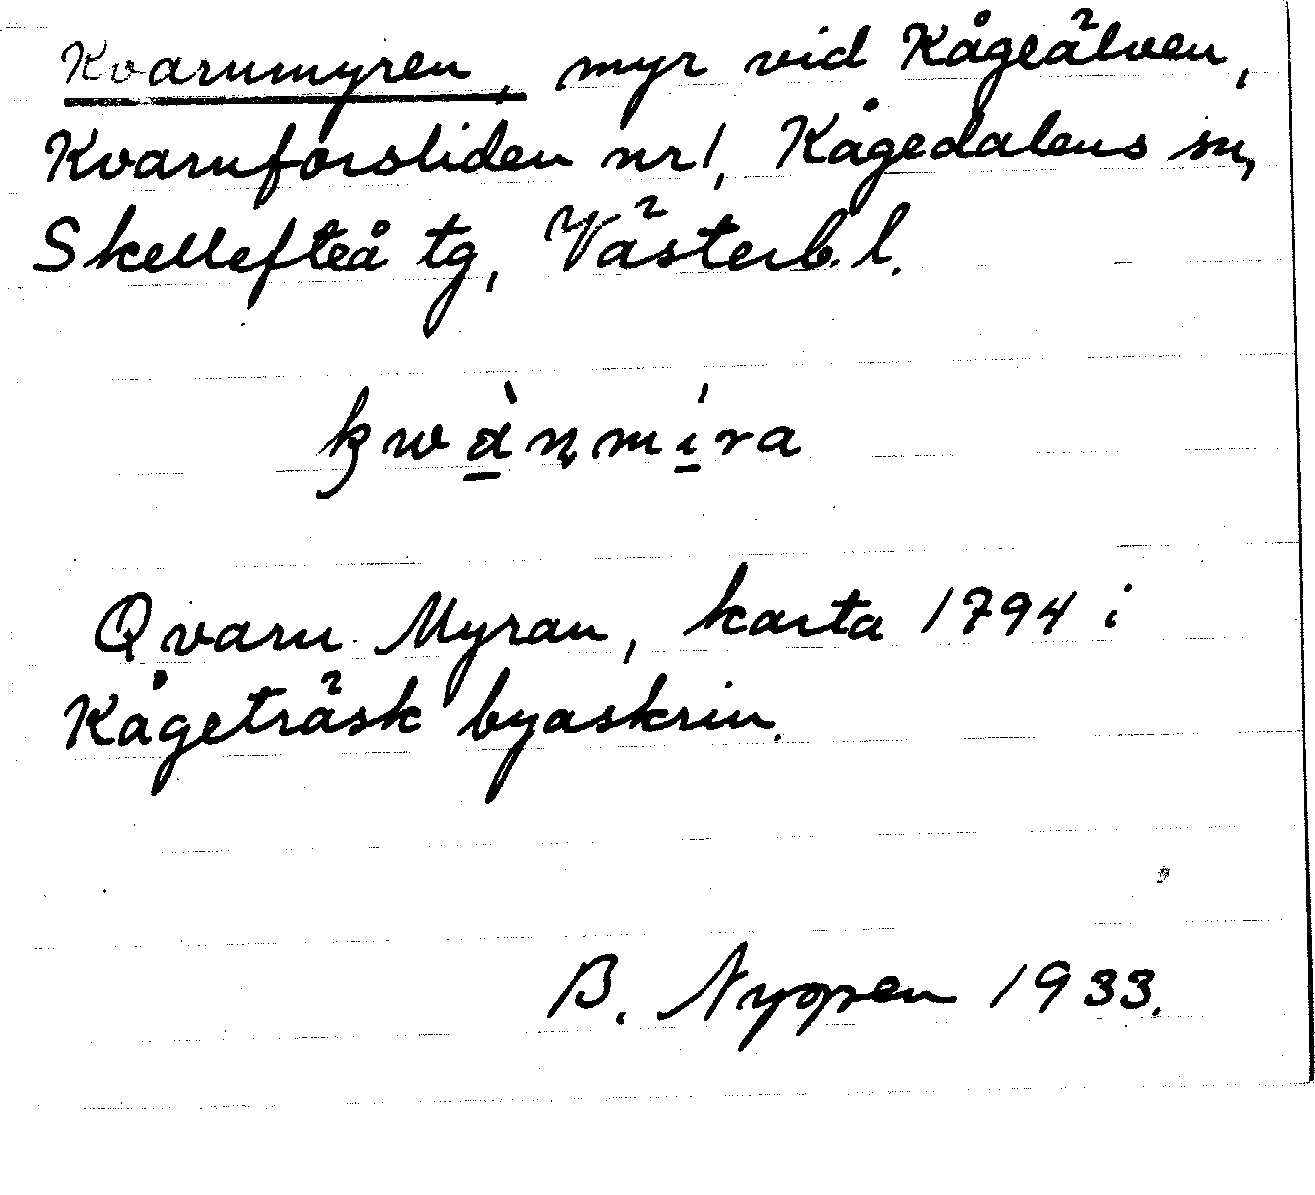 Kvarnmyren, myr vid Kågeälven,
Kvarnforsliden nr 1, Kågedalens sn,
Skellefteå tg, Västerb. l.
kwànmíra
Qvarn Myran, karta 1794 i
Kågeträsk byaskrin.
B. Nyopen 1933.